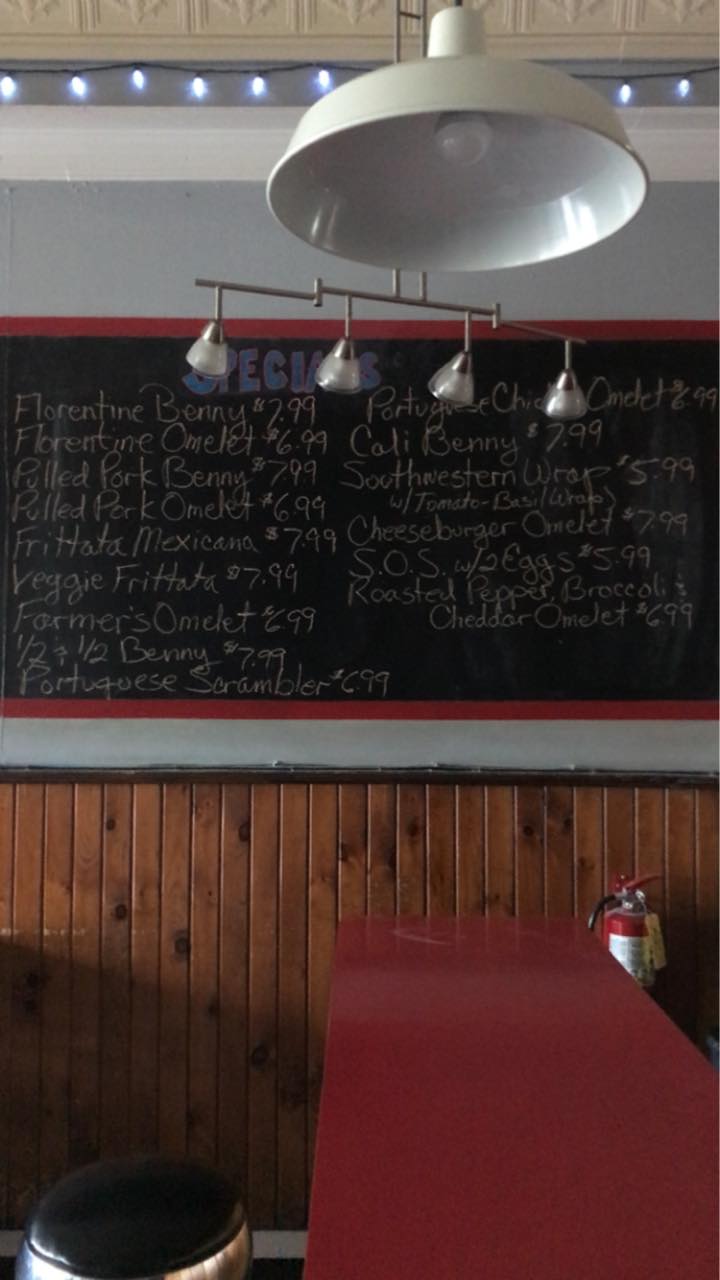 SPECIALS
Florentine Benny $7.99
Florentine Omelet $6.99
Pulled Pork Benny $7.99
Pulled Pork Omelet $6.99
Frittata Mexicana $7.99
Veggie Frittata $7.99
Farmer's Omelet $6.99
1/2 + 1/2 Benny $7.99
Portuguese Scrambler $6.99
Portuguese Omelet $6.99
Cali Benny $7.99
Southwestern Wrap $5.99
w/Tomato-Basil Wrap)
Cheeseburger Omelet $7.99
S.O.S. w/2 Eggs $5.99
Roasted Pepper, Broccoli &
Cheddar Omelet $6.99